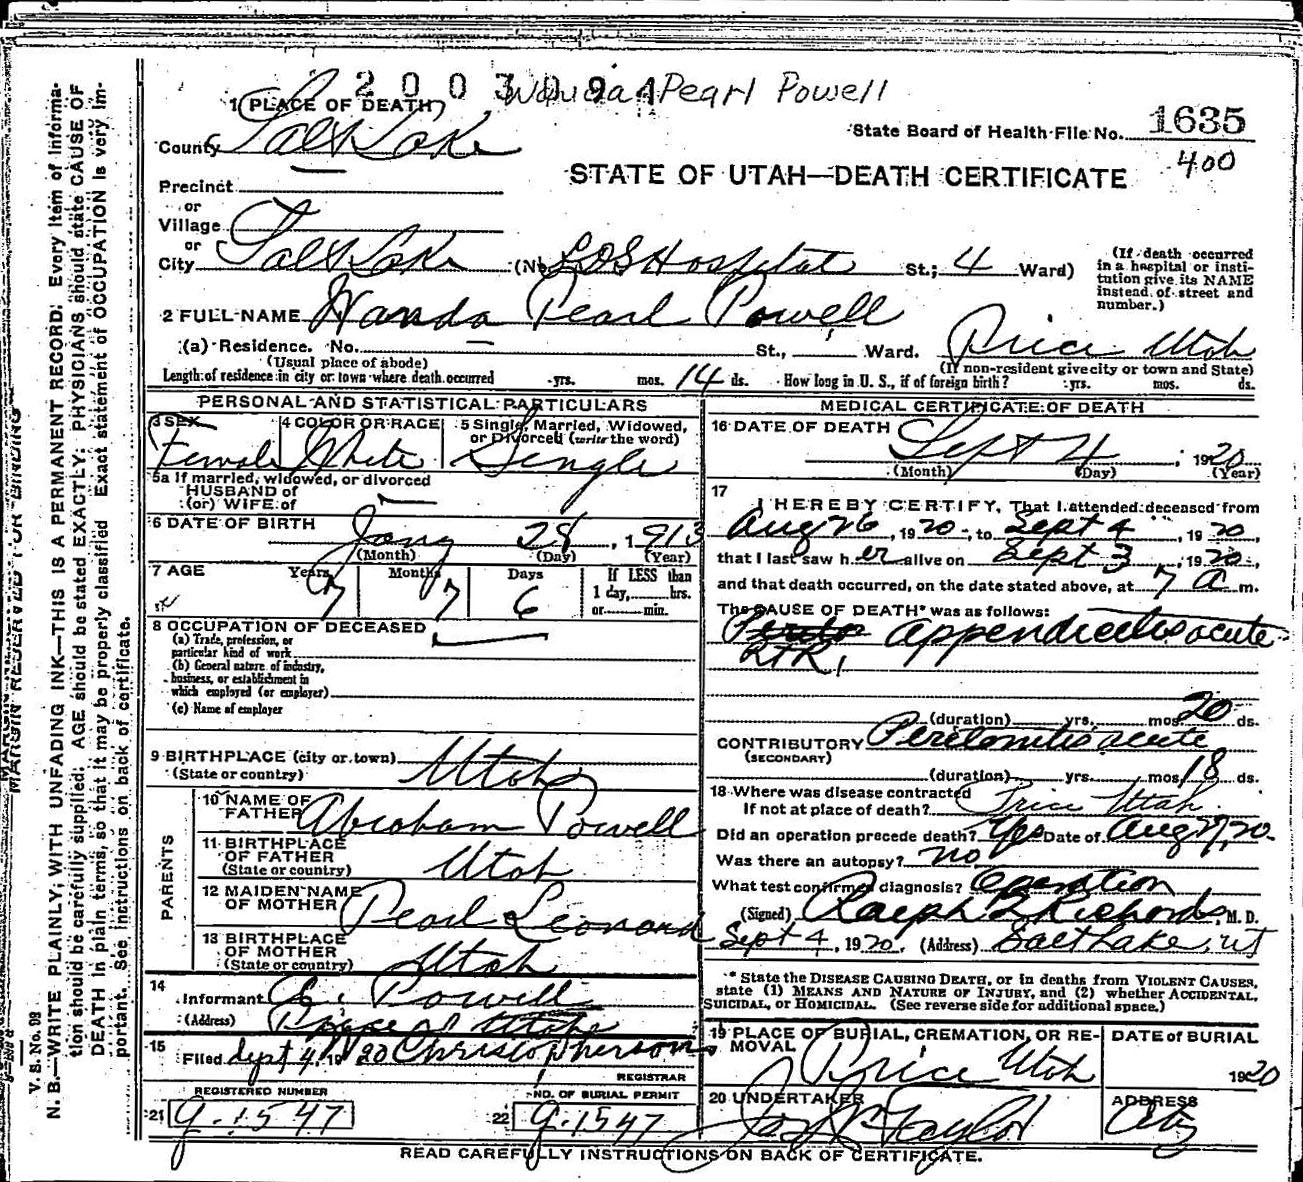 2003094 Wanda Pearl Powell
1 PLACE OF DEATH
State Board of Health File No. 1635
County Salt Lake
400
STATE OF UTAH—DEATH CERTIFICATE
Precinct
or
Village
or
City Salt Lake (No. LDS Hospital St.; 4 Ward)
(If death occurred in a hospital or insti-
tution give its NAME
instead of street and
number.)
2 FULL NAME Wanda Pearl Powell
(a) Residence. No. — St., Ward. Price Utah
(Usual place of abode) (If non-resident give city or town and State)
Length of residence in city or town where death occurred yrs. mos. 14 ds. How long in U. S., if of foreign birth? yrs. mos. ds.
PERSONAL AND STATISTICAL PARTICULARS
3 SEX 4 COLOR OR RACE 5 Single, Married, Widowed,
or Divorced (write the word)
Female White Single
5a If married, widowed, or divorced
HUSBAND of
(or) WIFE of
6 DATE OF BIRTH Jany 28, 1913
(Month) (Day) (Year)
7 AGE Years Months Days If LESS than
1 day, hrs.
or min.
7 7 6
8 OCCUPATION OF DECEASED
(a) Trade, profession, or
particular kind of work
(b) General nature of industry,
business, or establishment in
which employed (or employer)
(c) Name of employer
9 BIRTHPLACE (city or town)
(State or country) Utah
PARENTS
10 NAME OF
FATHER Abraham Powell
11 BIRTHPLACE
OF FATHER
(State or country) Utah
12 MAIDEN NAME
OF MOTHER Pearl Leonard
13 BIRTHPLACE
OF MOTHER
(State or country) Utah
14
Informant A. Powell
(Address) Utah
15
Filed Sept 4, 1920 Christopherson
REGISTRAR
REGISTERED NUMBER NO. OF BURIAL PERMIT
21 g-1547 22 g-1547
MEDICAL CERTIFICATE OF DEATH
16 DATE OF DEATH Sept 4, 1920
(Month) (Day) (Year)
17
I HEREBY CERTIFY, That I attended deceased from
Aug 26, 1920, to Sept 4, 1920
that I last saw her alive on Sept 3, 1920,
and that death occurred, on the date stated above, at 7 A m.
The CAUSE OF DEATH* was as follows:
Perito Appendicitis acute
RTR,
(duration) yrs. mos. 20 ds.
CONTRIBUTORY Peritonitis acute
(SECONDARY)
(duration) yrs. mos. 18 ds.
18 Where was disease contracted
If not at place of death? Price Utah.
Did an operation precede death? Yes Date of Aug 27, 20.
Was there an autopsy? no
What test confirmed diagnosis? Operation
(Signed) Ralph T Richards, M. D.
Sept 4, 1920. (Address) Salt Lake, Ut
* State the DISEASE CAUSING DEATH, or in deaths from VIOLENT CAUSES,
state (1) MEANS AND NATURE OF INJURY, and (2) whether ACCIDENTAL,
SUICIDAL, or HOMICIDAL. (See reverse side for additional space.)
19 PLACE OF BURIAL, CREMATION, OR RE-
MOVAL Price Utah
DATE of BURIAL
1920
20 UNDERTAKER
Taylor
ADDRESS
City
READ CAREFULLY INSTRUCTIONS ON BACK OF CERTIFICATE.
MARGIN RESERVED FOR BINDING
V. S. No. 98
N. B.—WRITE PLAINLY, WITH UNFADING INK—THIS IS A PERMANENT RECORD. Every item of informa-
tion should be carefully supplied. AGE should be stated EXACTLY. PHYSICIANS should state CAUSE OF
DEATH in plain terms, so that it may be properly classified. Exact statement of OCCUPATION is very im-
portant. See instructions on back of certificate.